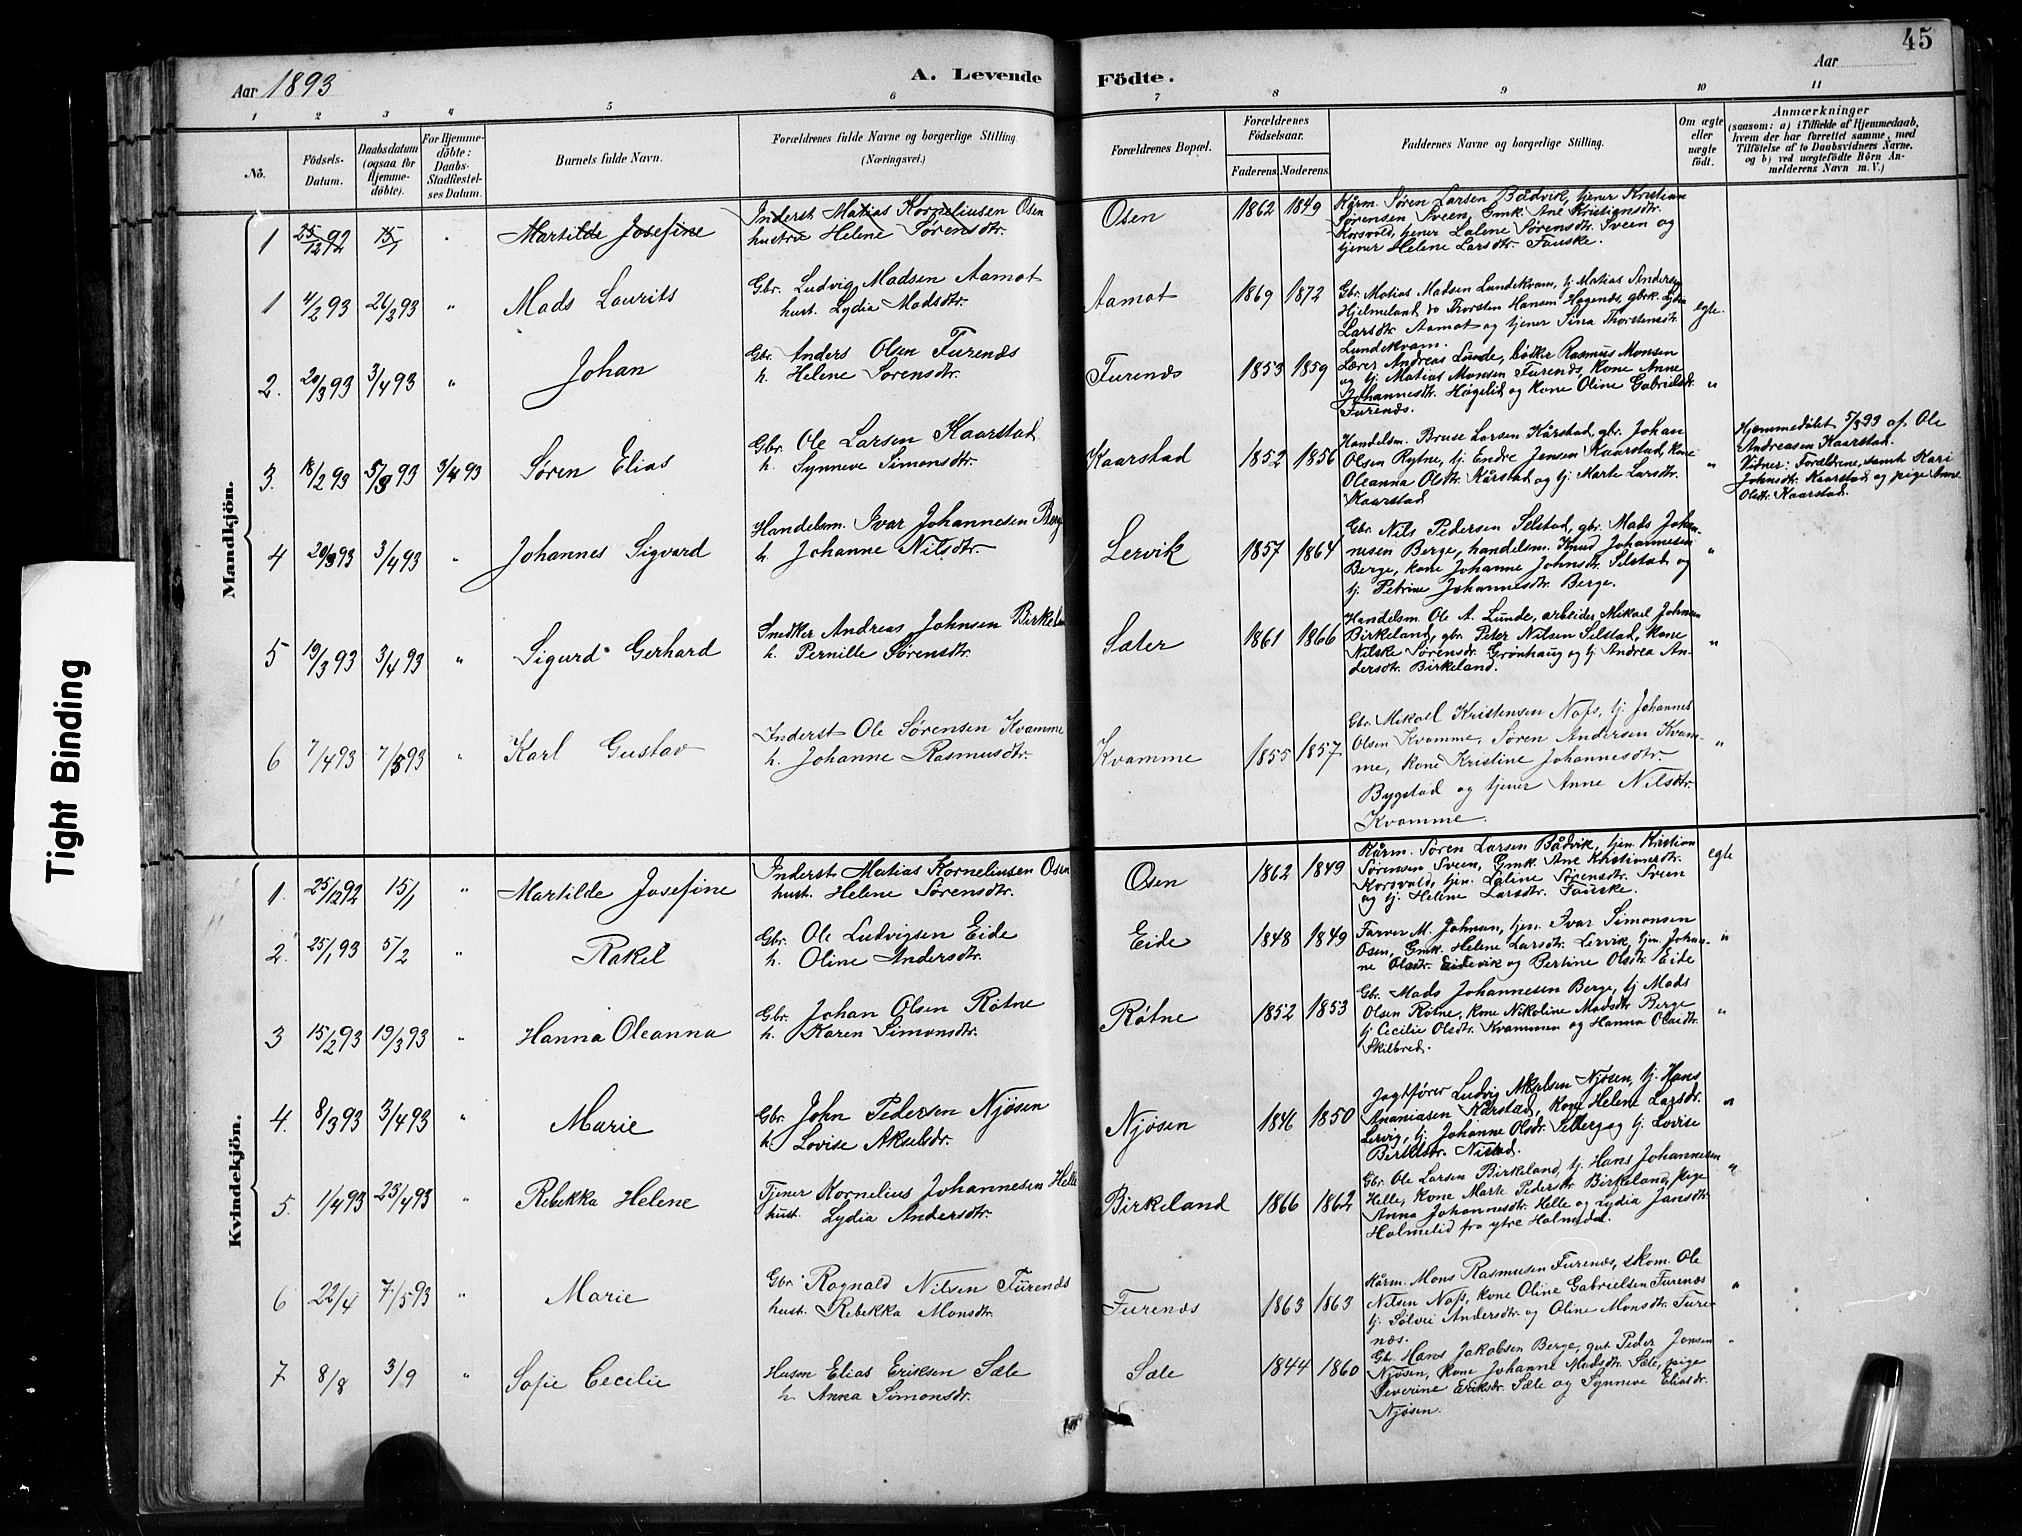 45
Aar 1893
A. Levende
Födte.
Aar
1 2 3 4 5 6 7 8 9 10 11
No.
Födsels-
Datum.
Daabsdatum
(ogsaa for
Hjemme-
döbte).
For Hjemme-
döbte:
Daabs-
Stadfæstel-
ses Datum.
Barnets fulde Navn.
Forældrenes fulde Navne og borgerlige Stilling
(Næringsvei.)
Forældrenes Bopæl.
Forældrenes
Födselsaar.
Faderens. Moderens.
Faddernes Navne og borgerlige Stilling.
Om ægte
eller
uægte
födt.
Anmærkninger
(saasom: a) i Tilfælde af Hjemmedaab,
hvem der har forrettet samme, med
Tilföielse af to Daabsvidners Navne,
og b) ved uægtefödte Börn An-
melderens Navn m. V.)
Mandkjön.
1 25/12 92 15/1 " Martilde Josefine
Inderst Matias Korneliusen Osen
hustru Helene Sørensdtr.
Osen 1862 1849
Kårm. Søren Larsen Bådvik, tjener Kristian
Sørensen Sveen, Gmk. Ane Kristiansdtr.
Korsvold, tjener Lalene Sørensdtr. Sveen og
tjener Helene Larsdtr. Fauske.
1 4/2 93 26/2 93 " Mads Laurits
Gbr. Ludvig Madsen Aamot
hust. Lydia Madsdtr.
Aamot 1869 1872
Gbr. Matias Madsen Lundekvam, tj. Matias Andersen
Hjelmeland do Thorsten Hansen Hagenæs, gbrk. Lydia
Larsdtr. Aamot og tjener Sina Thorstensdtr.
Lundekvam.
egte.
2. 20/3 93 3/4 93 " Johan
Gbr. Anders Olsen Furenæs
h. Helene Sørensdtr.
Furenæs 1853 1859
Lærer Andreas Lunde, bødker Rasmus Monsen
og tj. Matias Monsen Furenæs, kone Anne
Johannesdtr. Høgelid og kone Oline Gabrielsdr.
Furenæs.
"
3. 18/2 93 5/3 93 3/4 93 Søren Elias
Gbr. Ole Larsen Kaarstad
h. Synneve Simonsdtr.
Kaarstad 1852 1856
Handelsm. Bruse Larsen Kårstad, gbr. Johan
Olsen Rytne, tj. Endre Jensen Kaarstad, kone
Oleanna Olsdtr. Kårstad og tj. Marte Larsdtr.
Kaarstad
"
Hjemmedøbt 5/3 93 af Ole
Andreasen Kaarstad.
Vidner: Forældrene, samt Mari
Johnsdtr. Kaarstad og pige Anne
Olsdtr. Kaarstad.
4 20/3 93 3/4 93 " Johannes Sigvard
Handelsm. Ivar Johannesen Berge
h. Johanne Nilsdtr.
Lervik 1857 1864
Gbr. Nils Pedersen Selstad, gbr. Mads Johan-
nesen Berge, handelsm. Knud Johannesen
Berge, kone Johanne Johnsdtr. Selstad og
tj. Petrine Johannesdtr. Berge.
"
5 19/3 93 3/4 93 " Sigurd Gerhard
Snedker Andreas Johnsen Birkeland
h. Pernille Sørensdtr.
Sæler 1861 1866
Handelsm. Ole A. Lunde, arbeider Mikael Johnsen
Birkeland, gbr. Peter Nilsen Selstad, kone
Nilske Sørensdr. Grønhaug og tj. Andrea An-
dersdtr. Birkeland.
"
6 7/4 93 7/5 93 " Karl Gustav
Inderst Ole Sørensen Kvamme
h. Johanne Rasmusdtr.
Kvamme 1855 1857
Gbr. Mikael Kristensen Nofs, tj. Johannes
Olsen Kvamme, Søren Andersen Kvam-
me, kone Kristine Johannesdtr.
Bygstad og tjener Anne Nilsdtr.
Kvamme.
"
Kvindekjön.
1. 25/12 92 15/1 " Martilde Josefine
Inderst Matias Korneliusen Osen
hust. Helene Sørensdtr.
Osen 1862 1849
Kårm. Søren Larsen Bådvik, tjen. Kristian
Sørensen Sveen, Gmk. Ane Kristiansdtr.
Korsvold, tjen. Laline Sørensdtr. Sveen
og tj. Helene Larsdtr. Fauske.
egte
2. 25/1 93 5/2 " Rakel
Gbr. Ole Ludvigsen Eide
h. Oline Andersdtr.
Eide 1848 1849
Farver M. Johnsen, tjen. Ivar Simonsen
Osen, Gmk. Helene Larsdtr. Lervik, tjen. Johan-
ne Olsdtr. Eidevik og Bertine Olsdtr. Eide
"
3 15/2 93 19/3 93 " Hanna Oleanna
Gbr. Johan Olsen Røtne
h. Karen Simonsdtr.
Røtne 1852 1853
Gbr. Mads Johannesen Berge, tj Mads
Olsen Røtne, kone Nikoline Madsdtr. Berge
tj Cecilie Olsdtr. Kvammen og Hanna Olsdtr.
Skilbred.
"
4. 8/3 93 3/4 93 " Marie
Gbr. John Pedersen Njøsen
h. Lovise Akselsdr.
Njøsen 1846 1850
Jagtfører Ludvig Akselsen Njøsen, tj. Hans
Ananiasen Kårstad, kone Helene Larsdr.
Lervig, tj. Johanne Olsdr. og tj. Lovise
Nistad.
"
5. 1/4 93 25/4 93 " Rebekka Helene
Tjener Kornelius Johannesen Helle
hust. Lydia Andersdtr.
Birkeland 1866 1862
Gbr. Ole Larsen Birkeland, tj. Hans Johannesen
Helle, kone Marte Pedersdtr. Birkeland, pige
Anna Johannesdtr. Helle og Lydia Jansdtr.
Holmelid fra ytre Holmedal.
"
6 22/4 7/5 93 " Marie
Gbr. Ragnald Nilsen Furenæs
hust. Rebekka Monsdtr.
Furenæs 1863 1863
Kårm. Mons Rasmusen Furenæs, skom. Ole
Nilsen Nofs, kone Oline Gabrielsen Furenæs
tj. Sølvei Andersdtr. og Oline Monsdtr. Fure-
næs.
"
7 8/8 3/9 " Sofie Cecilie
Husm Elias Eriksen Sæle
h. Anna Simonsdr.
Sæle 1844 1860
Gbr. Hans Jakobsen Berge, gut Peder Jonsen
Njøsen, kone Johanne Madsdtr. Sæle, pige
Severine Eriksdr. Sæle og Synneve Eliasdr.
Njøsen.
"
Tight Binding